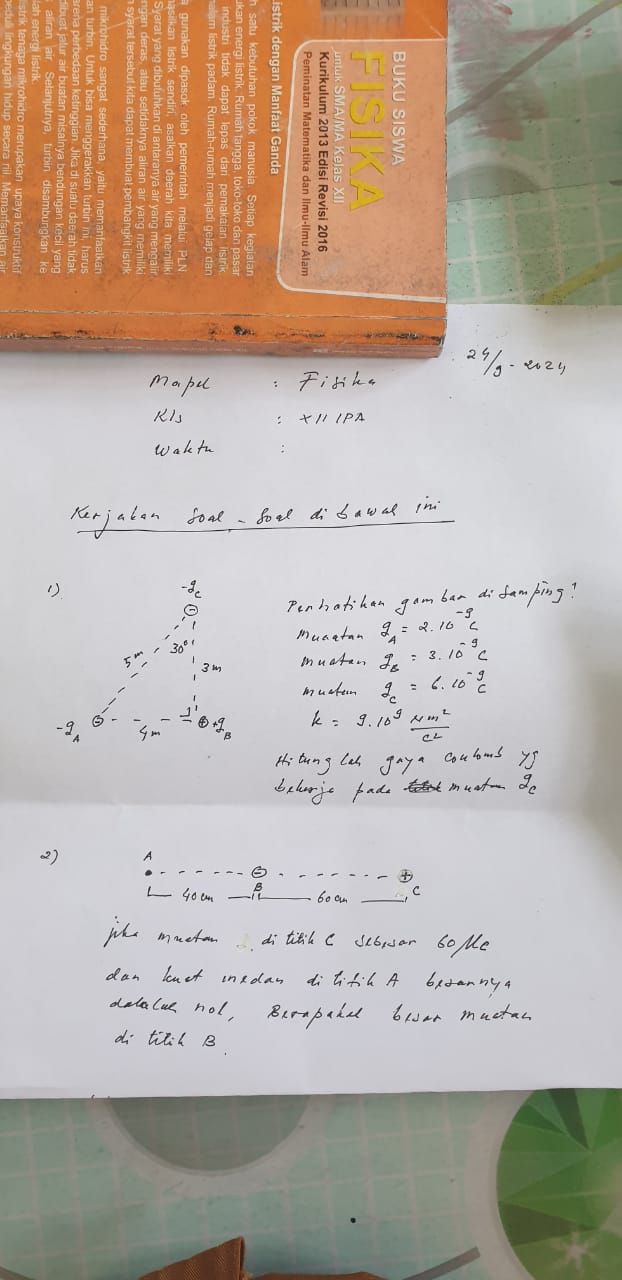 BUKU SISWA
FISIKA
untuk SMA/MA Kelas XII
Kurikulum 2013 Edisi Revisi 2016
Peminatan Matematika dan Ilmu-Ilmu Alam
listrik dengan Manfaat Ganda
satu kebutuhan pokok manusia. Setiap kegiatan
energi listrik. Rumah tangga, toko-toko dan pasar
industri tidak dapat lepas dari pemakaian listrik.
listrik padam. Rumah-rumah menjadi gelap dan
gunakan dipasok oleh pemerintah melalui PLN
listrik sendiri, asalkan daerah kita memiliki
Syarat yang dibutuhkan di antaranya air yang mengalir
deras, atau setidaknya aliran air yang memiliki
syarat tersebut kita dapat membuat pembangkit listrik
mikrohidro sangat sederhana, yaitu memanfaatkan
turbin. Untuk bisa menggerakkan turbin ini, harus
perbedaan ketinggian. Jika di suatu daerah tidak
dibuat jalur air buatan misalnya bendungan kecil yang
aliran air. Selanjutnya, turbin disambungkan ke
energi listrik.
tenaga mikrohidro merupakan upaya konstruktif
lingkungan hidup secara riil. Memanfaatkan air
24/9-2024
Mapel : Fisika
Kls : XII IPA
Waktu :
Kerjakan Soal - Soal di bawal ini
1)
-qc
30°
5m
3m
-qA
4m
+qB
Perhatikan gambar di samping!
muaatan qA = 2.10⁻⁹ C
muatan qB = 3.10⁻⁹ C
muatan qc = 6.10⁻⁹ C
k = 9.10⁹ Nm²/C²
Hitunglah gaya Coulomb yg
bekerja pada muatan qc
2)
A
B
C
40 cm
60 cm
jika muatan di titik C sebesar 60 μc
dan kuat medan di titik A besarnya
dalalah nol, Berapakah besar muatan
di titik B.